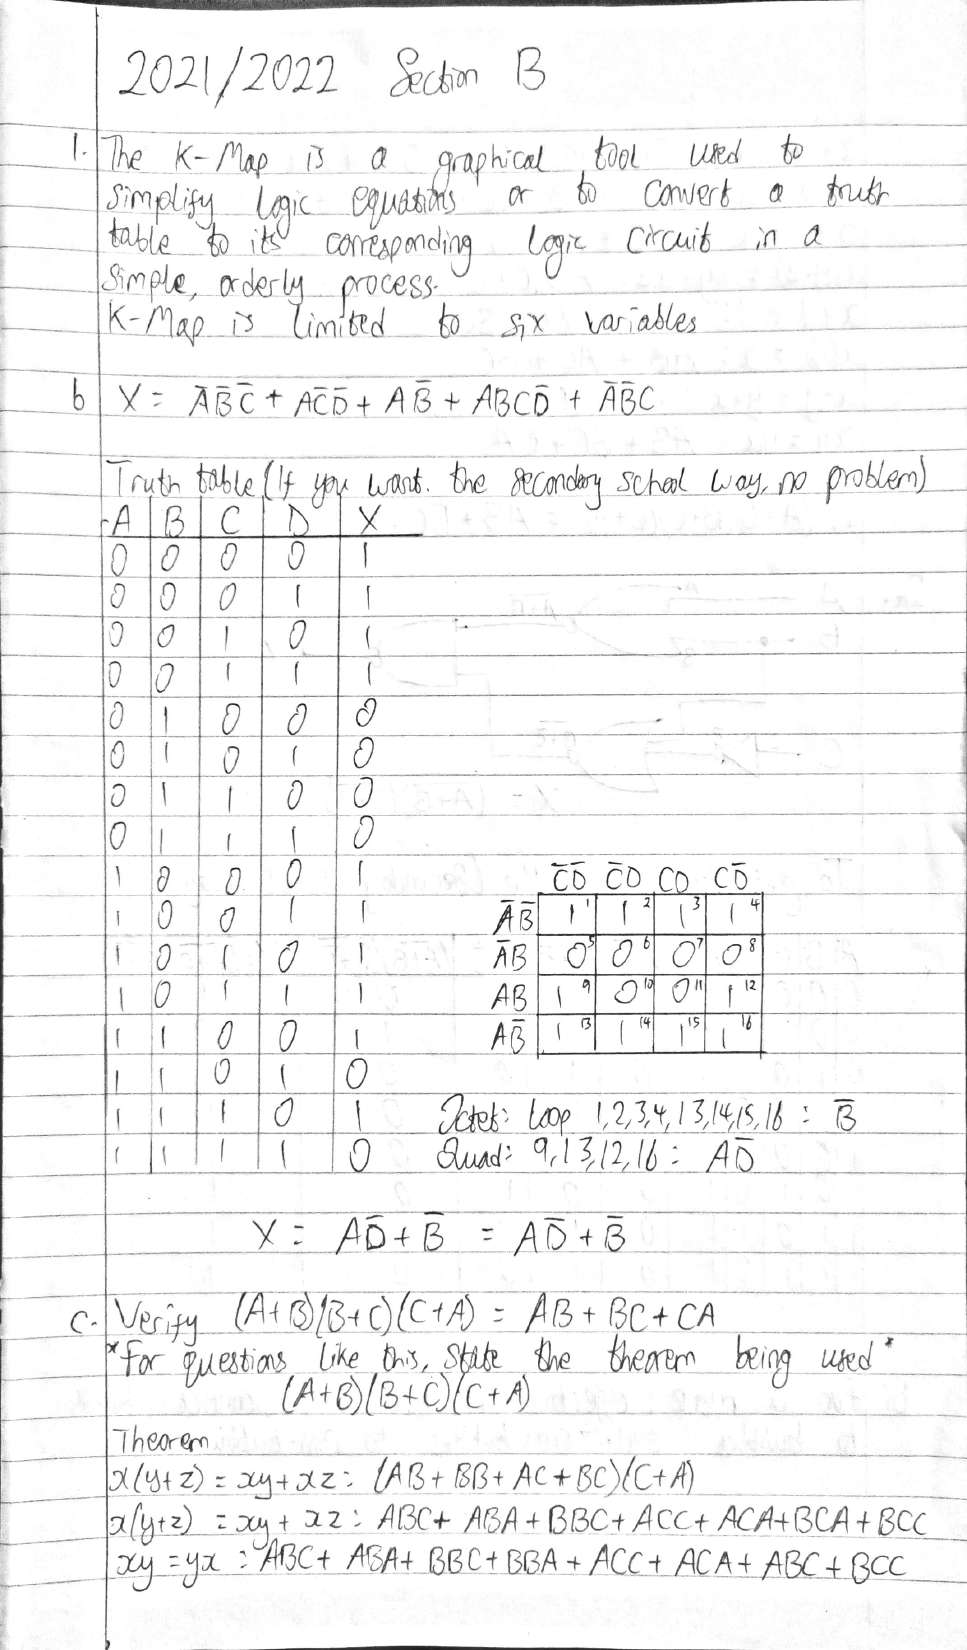 2021/2022 Section B
1. The K-Map is a graphical tool used to
simplify logic equations or to convert a truth
table to its corresponding logic circuit in a
simple, orderly process.
K-Map is limited to six variables
b X = A̅B̅C̅ + AC̅D̅ + AB̅ + ABCD̅ + A̅B̅C
Truth table (If you want. the secondary school way, no problem)
A B C D X
0 0 0 0 1
0 0 0 1 1
0 0 1 0 1
0 0 1 1 1
0 1 0 0 0
0 1 0 1 0
0 1 1 0 0
0 1 1 1 0
1 0 0 0 1
1 0 0 1 1
1 0 1 0 1
1 0 1 1 1
1 1 0 0 1
1 1 0 1 0
1 1 1 0 1
1 1 1 1 0
C̅D̅ C̅D CD CD̅
A̅B̅ 1 1 1 2 1 3 1 4
A̅B 0 5 0 6 0 7 0 8
AB 1 9 0 10 0 11 1 12
AB̅ 1 13 1 14 1 15 1 16
Octet: Loop 1,2,3,4,13,14,15,16 : B̅
Quad: 9,13,12,16 : AD̅
X = AD̅ + B̅ = AD̅ + B̅
c. Verify (A+B)(B+C)(C+A) = AB + BC + CA
*For questions like this, state the theorem being used*
(A+B)(B+C)(C+A)
Theorem
x(y+z) = xy+xz : (AB + BB + AC + BC)(C+A)
x(y+z) = xy + xz : ABC + ABA + BBC + ACC + ACA + BCA + BCC
xy = yx : ABC + ABA + BBC + BBA + ACC + ACA + ABC + BCC